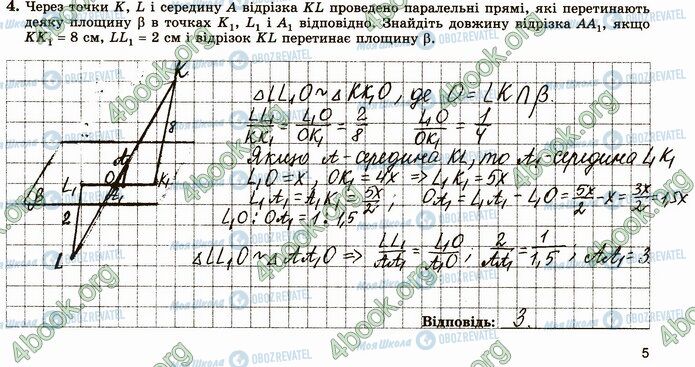 4. Через точки K, L і середину A відрізка KL проведено паралельні прямі, які перетинають
деяку площину β в точках K₁, L₁ і A₁ відповідно. Знайдіть довжину відрізка AA₁, якщо
KK₁ = 8 см, LL₁ = 2 см і відрізок KL перетинає площину β.
K
8
A
O
L₁
A₁
K₁
β
2
L
△LL₁O ~ △KK₁O, де O = LK ∩ β.
LL₁/KK₁ = L₁O/OK₁ = 2/8 L₁O/OK₁ = 1/4
Якщо A - середина KL, то A₁ середина L₁K₁
L₁O = x, OK₁ = 4x ⇒ L₁K₁ = 5x
L₁A₁ = A₁K₁ = 5x/2; OA₁ = L₁A₁ - L₁O = 5x/2 - x = 3x/2 = 1,5x
L₁O : OA₁ = 1 : 1,5
△LL₁O ~ △AA₁O ⇒ LL₁/AA₁ = L₁O/A₁O; 2/AA₁ = 1/1,5; AA₁ = 3
Відповідь: 3.
5
4book.org
Моя Школа OBOZREVATEL